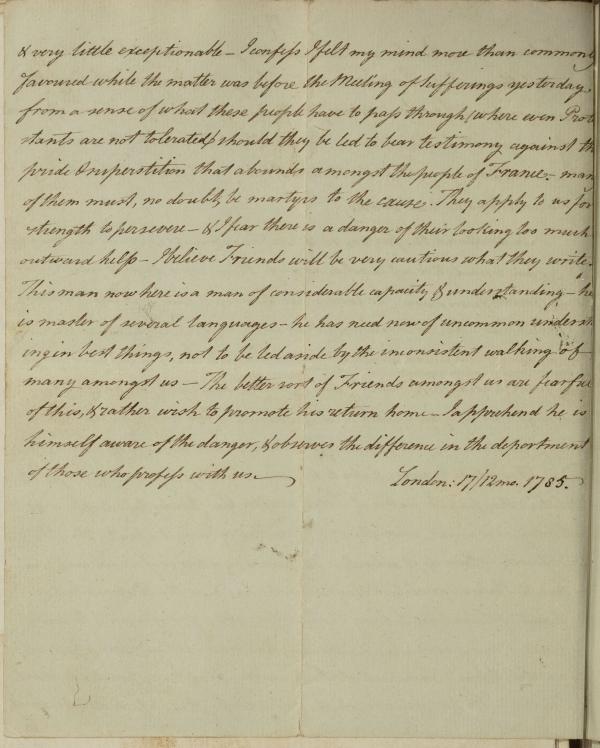 & very little exceptionable – I confess I felt my mind more than commonly
favoured while the matter was before the Meeting of Sufferings yesterday,
from a sense of what these people have to pass through (where even Prote
stants are not tolerated) should they be led to bear testimony against the
pride & superstition that abounds amongst the people of France. – many
of them must, no doubt, be martyrs to the cause. They apply to us for
strength to persevere – & I fear there is a danger of their looking too much
outward help – I believe Friends will be very cautious what they write.
This man now here is a man of considerable capacity & understanding – he
is master of several languages – he has need now of uncommon underst
ing in best things, not to be led aside by the inconsistent walking of
many amongst us – The better sort of Friends amongst us are fearful
of this, & rather wish to promote his return home – I apprehend he is
himself aware of the danger, & observes the difference in the deportment
of those who profess with us –
London: 17/12mo. 1785.